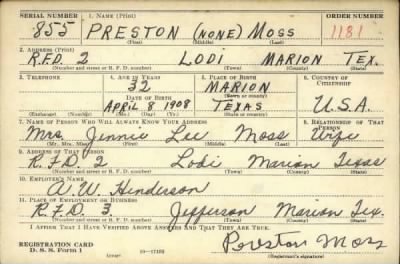 SERIAL NUMBER 1. NAME (Print) ORDER NUMBER
855 PRESTON (NONE) MOSS 1181
(First) (Middle) (Last)
2. ADDRESS (Print)
R.F.D. 2 LODI MARION TEX.
(Number and street or R. F. D. number) (Town) (County) (State)
3. TELEPHONE 4. AGE IN YEARS 5. PLACE OF BIRTH 6. COUNTRY OF CITIZENSHIP
32 MARION
(Town or county)
DATE OF BIRTH
APRIL 8 1908 TEXAS U.S.A.
(Exchange) (Number) (Mo.) (Day) (Yr.) (State or country)
7. NAME OF PERSON WHO WILL ALWAYS KNOW YOUR ADDRESS 8. RELATIONSHIP OF THAT PERSON
Mrs. Jennie Lee Moss Wife
(Mr., Mrs., Miss) (First) (Middle) (Last)
9. ADDRESS OF THAT PERSON
R.F.D. 2 Lodi Marion Texas
(Number and street or R. F. D. number) (Town) (County) (State)
10. EMPLOYER'S NAME
A. W. Henderson
11. PLACE OF EMPLOYMENT OR BUSINESS
R.F.D. 3. Jefferson Marion Tex.
(Number and street or R. F. D. number) (Town) (County) (State)
I AFFIRM THAT I HAVE VERIFIED ABOVE ANSWERS AND THAT THEY ARE TRUE.
REGISTRATION CARD
D. S. S. Form 1
Preston Moss
(Registrant's signature)